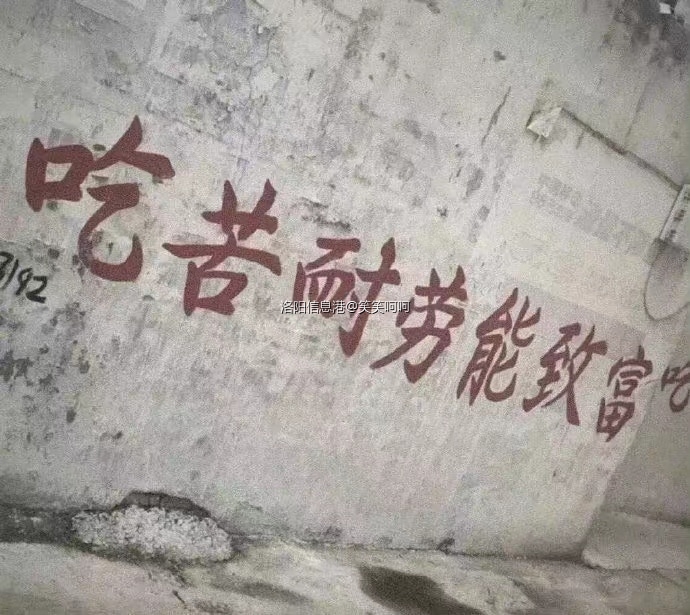 吃苦耐劳能致富吃
洛阳信息港@笑笑呵呵
3192